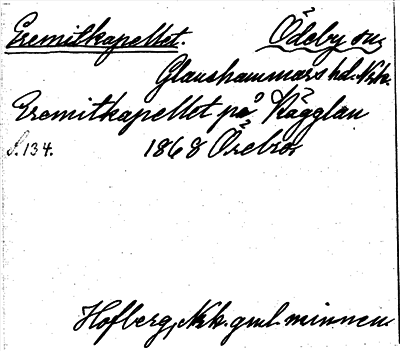 Eremitkapellet. Ödeby sn
Glanshammars hd. Nrk.
Eremitkapellet på Kägglan
s. 134. 1868 Örebro
Hofberg, Nrk. gml. minnen